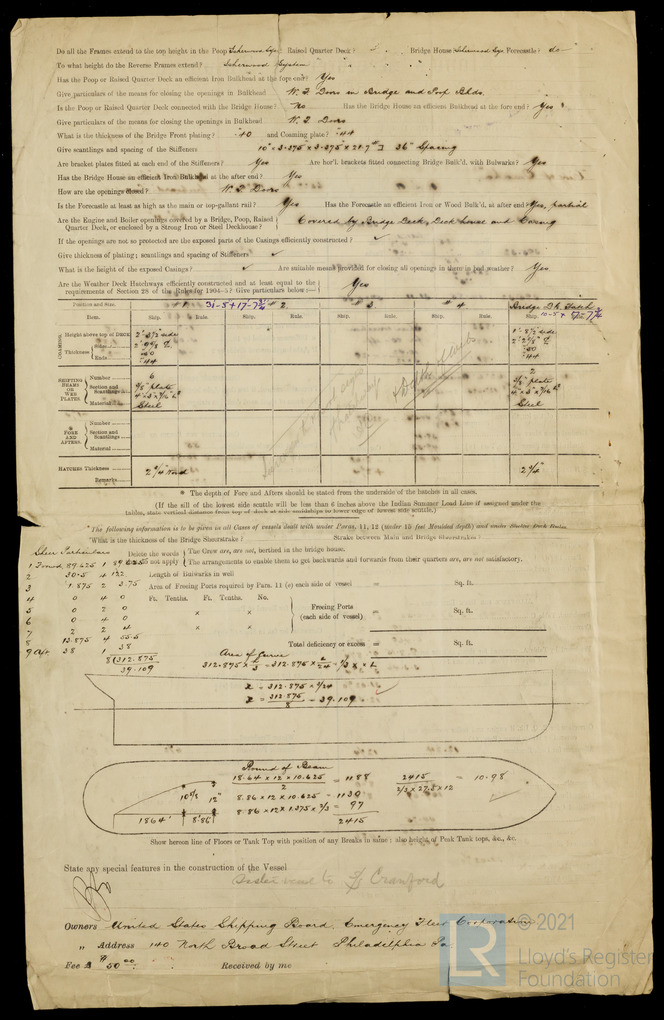 Do all the Frames extend to the top height in the Poop Isherwood Sys. Raised Quarter Deck? Bridge House Isherwood Sys Forecastle? do
To what height do the Reverse Frames extend? Isherwood System
Has the Poop or Raised Quarter Deck an efficient Iron Bulkhead at the fore end? Yes
Give particulars of the means for closing the openings in Bulkhead W.T. Doors in Bridge and Poop Bhds.
Is the Poop or Raised Quarter Deck connected with the Bridge House? No Has the Bridge House an efficient Bulkhead at the fore end? Yes
Give particulars of the means for closing the openings in Bulkhead W.T. Doors
What is the thickness of the Bridge Front plating? .40 and Coaming plate? .44
Give scantlings and spacing of the Stiffeners 10" x 3.375 x 3.375 x 21.7# 36" Spacing
Are bracket plates fitted at each end of the Stiffeners? Yes Are hor'l. brackets fitted connecting Bridge Bulk'd. with Bulwarks? Yes
Has the Bridge House an efficient Iron Bulkhead at the after end? Yes
How are the openings closed? W.T. Doors
Is the Forecastle at least as high as the main or top-gallant rail? Yes Has the Forecastle an efficient Iron or Wood Bulk'd. at after end? Yes, partial
Are the Engine and Boiler openings covered by a Bridge, Poop, Raised Quarter Deck, or enclosed by a Strong Iron or Steel Deckhouse? Covered by Bridge Deck, Deck house and Casing
If the openings are not so protected are the exposed parts of the Casings efficiently constructed? ✓
Give thickness of plating; scantlings and spacing of Stiffeners ✓
What is the height of the exposed Casings? ✓ Are suitable means provided for closing all openings in them in bad weather? Yes.
Are the Weather Deck Hatchways efficiently constructed and at least equal to the requirements of Section 28 of the Rules for 1904-5? Give particulars below:— Yes
Position and Size. # 1 31-5 + 17-7¾ # 2. # 3 # 4. Bridge Dk Hatch
Item. Ship. Rule. Ship. Rule. Ship. Rule. Ship. Rule. Ship. Rule.
COAMING Height above top of DECK
Thickness Sides
Ends .44 .44
SHIFTING BEAMS OR WEB PLATES Number 6 2
Section and Scantlings
Material Steel Steel
* FORE AND AFTERS. Number
Section and Scantlings
Material
HATCHES Thickness 2¼" Wood 2¼"
Remarks
* The depth of Fore and Afters should be stated from the underside of the hatches in all cases.
(If the sill of the lowest side scuttle will be less than 6 inches above the Indian Summer Load Line if assigned under the
tables, state vertical distance from top of deck at side amidships to lower edge of lowest side scuttle.)
*The following information is to be given in all Cases of vessels dealt with under Paras. 11, 12 (under 15 feet Moulded depth) and under Shelter Deck Rules.
What is the thickness of the Bridge Sheerstrake? Strake between Main and Bridge Sheerstrakes?
Sheer Particulars
Delete the words not apply The Crew are, are not, berthed in the bridge house.
The arrangements to enable them to get backwards and forwards from their quarters are, are not satisfactory.
1 Forwd. 89.625 1 89.625
2 30.5 4 122
3 1.875 2 3.75
4 0 4 0
5 0 2 0
6 0 4 0
7 2 2 4
8 13.875 4 55.5
9 Aft 38 1 38
8(312.875
39.109
Length of Bulwarks in well
Area of Freeing Ports required by Para. 11 (e) each side of vessel = Sq. ft.
Ft. Tenths. Ft. Tenths. No.
x x
x x
Freeing Ports (each side of vessel) = Sq. ft.
Total deficiency or excess = Sq. ft.
Area of Curve
x = 312.875 x 3/24
x = 312.875/8 = 39.109
Round of Beam
18.64 x 12 x 10.625 / 2 = 1188
8.86 x 12 x 10.625 = 1130
8.86 x 12 x 1.375 x 2/3 = 97
2415
2415 / 2/3 x 27.5 x 12 = 10.98
10⅝ 12"
18.64' 8.86'
Show hereon line of Floors or Tank Top with position of any Breaks in same; also height of Peak Tank tops, &c., &c.
State any special features in the construction of the Vessel
Sister vessel to S/S Cranford
Owners United States Shipping Board, Emergency Fleet Corporation
„ Address 140 North Broad Street Philadelphia Pa.
Fee $ 50.00 Received by me
© 2021
LR
Lloyd's Register
Foundation